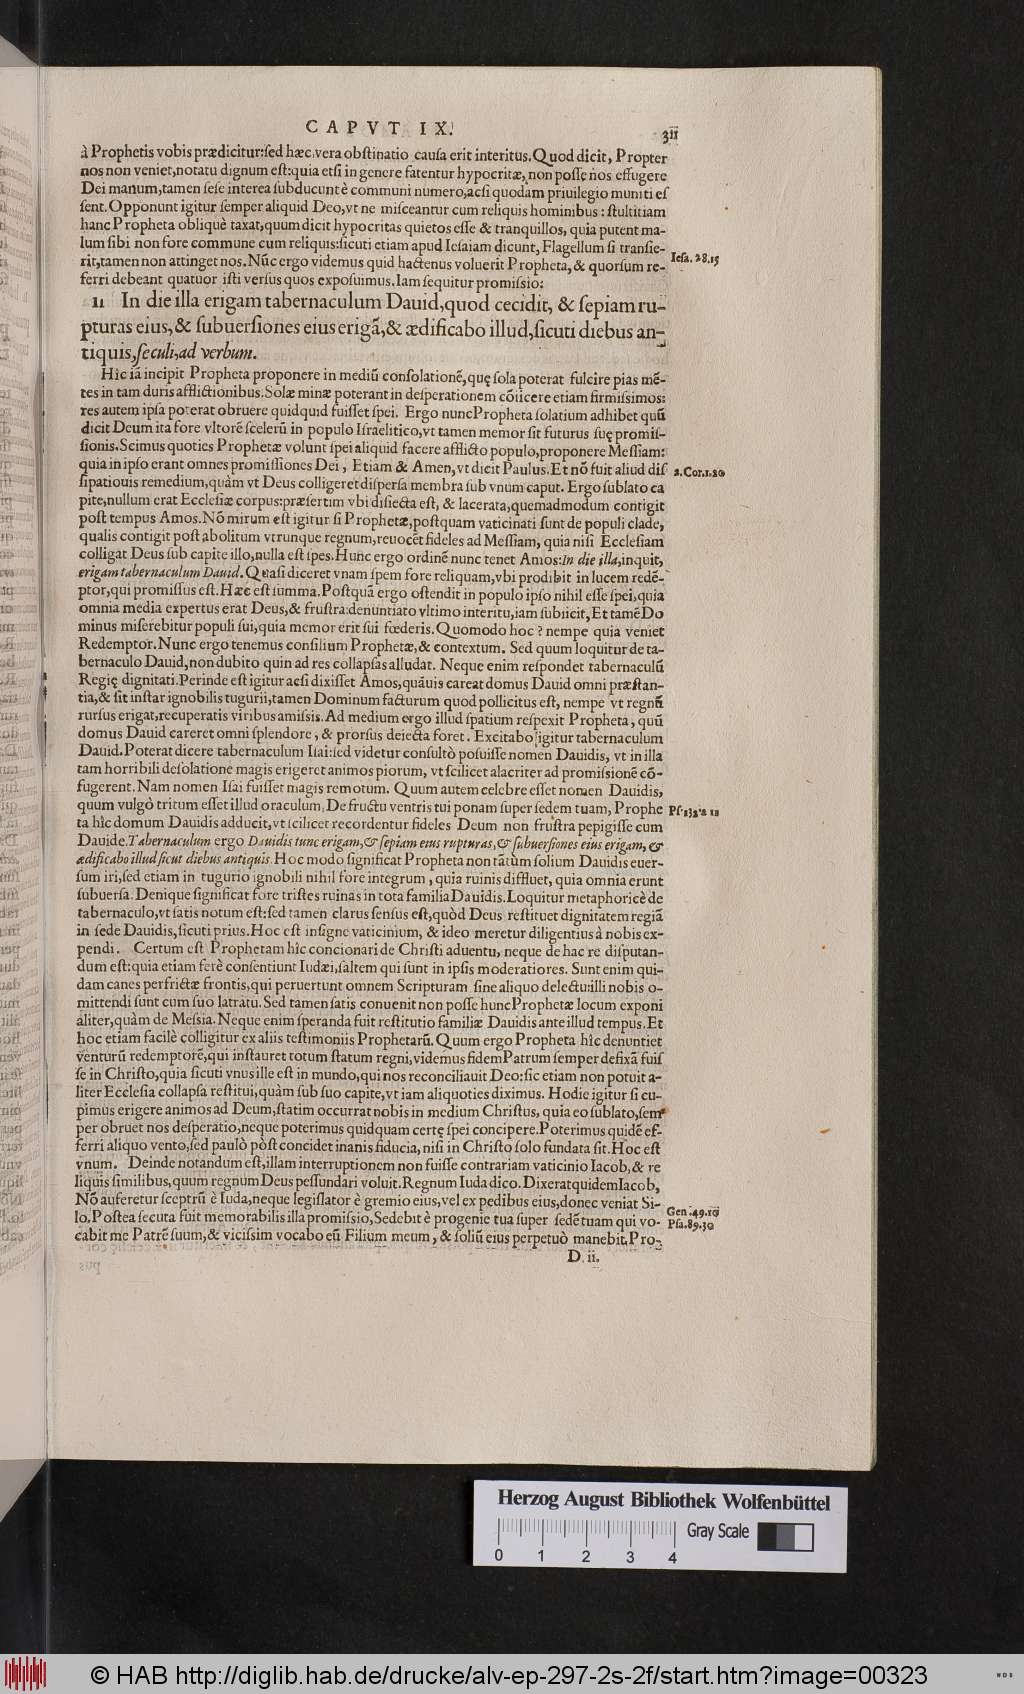 CAPVT IX.
311
à Prophetis vobis prædicitur:ſed hæc vera obſtinatio cauſa erit interitus. Quod dicit, Propter
nos non veniet,notatu dignum eſt:quia etſi in genere fatentur hypocritæ, non poſſe nos effugere
Dei manum,tamen ſeſe interea ſubducunt è communi numero,acſi quodam priuilegio muniti eſ
ſent. Opponunt igitur ſemper aliquid Deo,vt ne miſceantur cum reliquis hominibus : ſtultitiam
hanc Propheta obliquè taxat,quum dicit hypocritas quietos eſſe & tranquillos, quia putent ma-
lum ſibi non fore commune cum reliquis:ſicuti etiam apud Ieſaiam dicunt, Flagellum ſi tranſie-
rit,tamen non attinget nos. Nũc ergo videmus quid hactenus voluerit Propheta, & quorſum re-
ferri debeant quatuor iſti verſus quos expoſuimus. Iam ſequitur promiſsio:
Ieſa. 28.15
11 In die illa erigam tabernaculum Dauid,quod cecidit, & ſepiam ru-
pturas eius,& ſubuerſiones eius erigã,& ædificabo illud,ſicuti diebus an-
tiquis,ſeculi,ad verbum.
Hîc iã incipit Propheta proponere in mediũ conſolationẽ,quę ſola poterat fulcire pias mẽ-
tes in tam duris afflictionibus. Solæ minæ poterant in deſperationem cõiicere etiam firmiſsimos:
res autem ipſa poterat obruere quidquid fuiſſet ſpei. Ergo nunc Propheta ſolatium adhibet quũ
dicit Deum ita fore vltorẽ ſcelerũ in populo Iſraelitico,vt tamen memor ſit futurus ſuę promiſ-
ſionis. Scimus quoties Prophetæ volunt ſpei aliquid facere afflicto populo,proponere Meſsiam:
quia in ipſo erant omnes promiſsiones Dei, Etiam & Amen, vt dicit Paulus. Et nõ fuit aliud diſ
ſipatiouis remedium,quàm vt Deus colligeret diſperſa membra ſub vnum caput. Ergo ſublato ca
pite,nullum erat Eccleſiæ corpus:præſertim vbi diſiecta eſt, & lacerata,quemadmodum contigit
poſt tempus Amos. Nõ mirum eſt igitur ſi Prophetæ,poſtquam vaticinati ſunt de populi clade,
qualis contigit poſt abolitum vtrunque regnum,reuocẽt fideles ad Meſsiam, quia niſi Eccleſiam
colligat Deus ſub capite illo,nulla eſt ſpes. Hunc ergo ordinẽ nunc tenet Amos:In die illa,inquit,
erigam tabernaculum Dauid. Quaſi diceret vnam ſpem fore reliquam,vbi prodibit in lucem redẽ-
ptor,qui promiſſus eſt. Hæc eſt ſumma. Poſtquã ergo oſtendit in populo ipſo nihil eſſe ſpei,quia
omnia media expertus erat Deus,& fruſtra:denuntiato vltimo interitu,iam ſubiicit, Et tamẽ Do
minus miſerebitur populi ſui,quia memor erit ſui fœderis. Quomodo hoc? nempe quia veniet
Redemptor. Nunc ergo tenemus conſilium Prophetæ,& contextum. Sed quum loquitur de ta-
bernaculo Dauid,non dubito quin ad res collapſas alludat. Neque enim reſpondet tabernaculũ
Regię dignitati. Perinde eſt igitur acſi dixiſſet Amos,quãuis careat domus Dauid omni præſtan-
tia,& ſit inſtar ignobilis tugurii,tamen Dominum facturum quod pollicitus eſt, nempe vt regnũ
rurſus erigat,recuperatis viribus amiſsis. Ad medium ergo illud ſpatium reſpexit Propheta, quũ
domus Dauid careret omni ſplendore, & prorſus deiecta foret. Excitabo igitur tabernaculum
Dauid. Poterat dicere tabernaculum Iſai:ſed videtur conſultò poſuiſſe nomen Dauidis, vt in illa
tam horribili deſolatione magis erigeret animos piorum, vt ſcilicet alacriter ad promiſsionẽ cõ-
fugerent. Nam nomen Iſai fuiſſet magis remotum. Quum autem celebre eſſet nomen Dauidis,
quum vulgò tritum eſſet illud oraculum, De fructu ventris tui ponam ſuper ſedem tuam, Prophe
ta hîc domum Dauidis adducit,vt ſcilicet recordentur fideles Deum non fruſtra pepigiſſe cum
Dauide. Tabernaculum ergo Dauidis tunc erigam,& ſepiam eius rupturas,& ſubuerſiones eius erigam, &
ædificabo illud ſicut diebus antiquis. Hoc modo ſignificat Propheta non tãtùm ſolium Dauidis euer-
ſum iri,ſed etiam in tugurio ignobili nihil fore integrum, quia ruinis diffluet, quia omnia erunt
ſubuerſa. Denique ſignificat fore triſtes ruinas in tota familia Dauidis. Loquitur metaphoricè de
tabernaculo,vt ſatis notum eſt:ſed tamen clarus ſenſus eſt,quòd Deus reſtituet dignitatem regiã
in ſede Dauidis,ſicuti prius. Hoc eſt inſigne vaticinium, & ideo meretur diligentius à nobis ex-
pendi. Certum eſt Prophetam hîc concionari de Chriſti aduentu, neque de hac re diſputan-
dum eſt:quia etiam ferè conſentiunt Iudæi,ſaltem qui ſunt in ipſis moderatiores. Sunt enim qui-
dam canes perfrictæ frontis,qui peruertunt omnem Scripturam ſine aliquo delectu:illi nobis o-
mittendi ſunt cum ſuo latratu. Sed tamen ſatis conuenit non poſſe hunc Prophetæ locum exponi
aliter,quàm de Meſsia. Neque enim ſperanda fuit reſtitutio familiæ Dauidis ante illud tempus. Et
hoc etiam facilè colligitur ex aliis teſtimoniis Prophetarũ. Quum ergo Propheta hîc denuntiet
venturũ redemptorẽ,qui inſtauret totum ſtatum regni,videmus fidem Patrum ſemper defixã fuiſ
ſe in Chriſto,quia ſicuti vnus ille eſt in mundo,qui nos reconciliauit Deo:ſic etiam non potuit a-
liter Eccleſia collapſa reſtitui,quàm ſub ſuo capite,vt iam aliquoties diximus. Hodie igitur ſi cu-
pimus erigere animos ad Deum,ſtatim occurrat nobis in medium Chriſtus, quia eo ſublato,ſem
per obruet nos deſperatio,neque poterimus quidquam certę ſpei concipere. Poterimus quidẽ ef-
ferri aliquo vento,ſed paulò pòſt concidet inanis fiducia, niſi in Chriſto ſolo fundata ſit. Hoc eſt
vnum. Deinde notandum eſt,illam interruptionem non fuiſſe contrariam vaticinio Iacob, & re
liquis ſimilibus,quum regnum Deus peſſundari voluit. Regnum Iuda dico. Dixerat quidem Iacob,
Nõ auferetur ſceptrũ è Iuda,neque legiſlator è gremio eius,vel ex pedibus eius,donec veniat Si-
lo. Poſtea ſecuta fuit memorabilis illa promiſsio,Sedebit è progenie tua ſuper ſedẽ tuam qui vo-
cabit me Patrẽ ſuum,& viciſsim vocabo eũ Filium meum, & ſoliũ eius perpetuò manebit. Pro-
2. Cor.1.20
Pſ.132.a 11
Gen.49.10
Pſa.89.30
D. ii.
Herzog August Bibliothek Wolfenbüttel
Gray Scale
0 1 2 3 4
© HAB http://diglib.hab.de/drucke/alv-ep-297-2s-2f/start.htm?image=00323